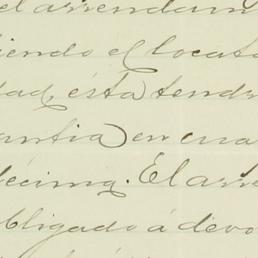 el arrendam
iendo el locata
dad, ésta tendr
antia) en cua
décima. El arre
obligado á devo